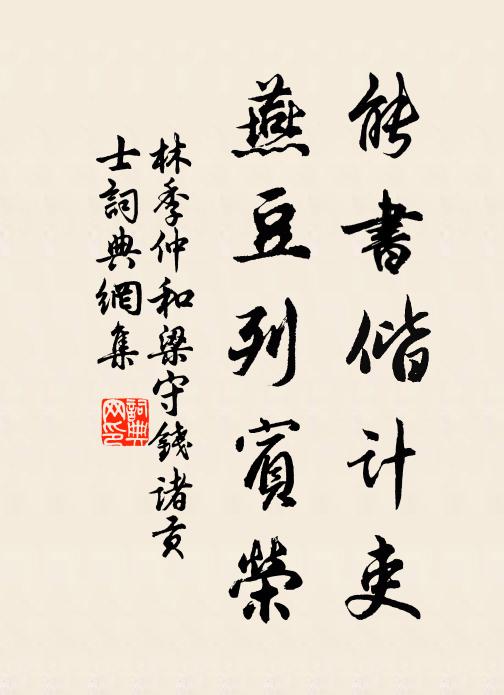 能書偕計吏
燕豆列賓榮
林季仲和梁守錢諸貢
士詞典網集
詞典網印